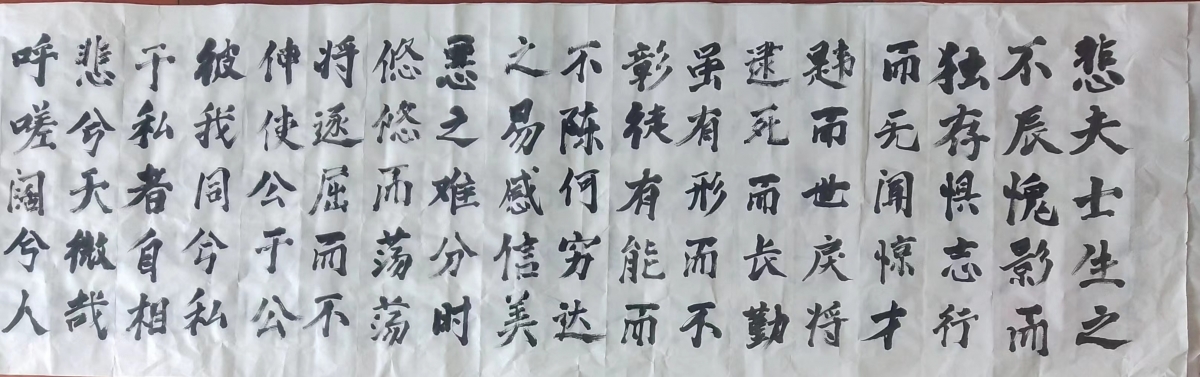 悲夫士生之
不辰愧影而
独存惧志行
而无闻惊才
韪而世戾将
逮死而长勤
虽有形而不
彰徒有能而
不陈何穷达
之易感信美
恶之难分时
悠悠而荡荡
将逐屈而不
伸使公于公
彼我同兮私
于私者自相
悲兮天微哉
呼嗟阔兮人